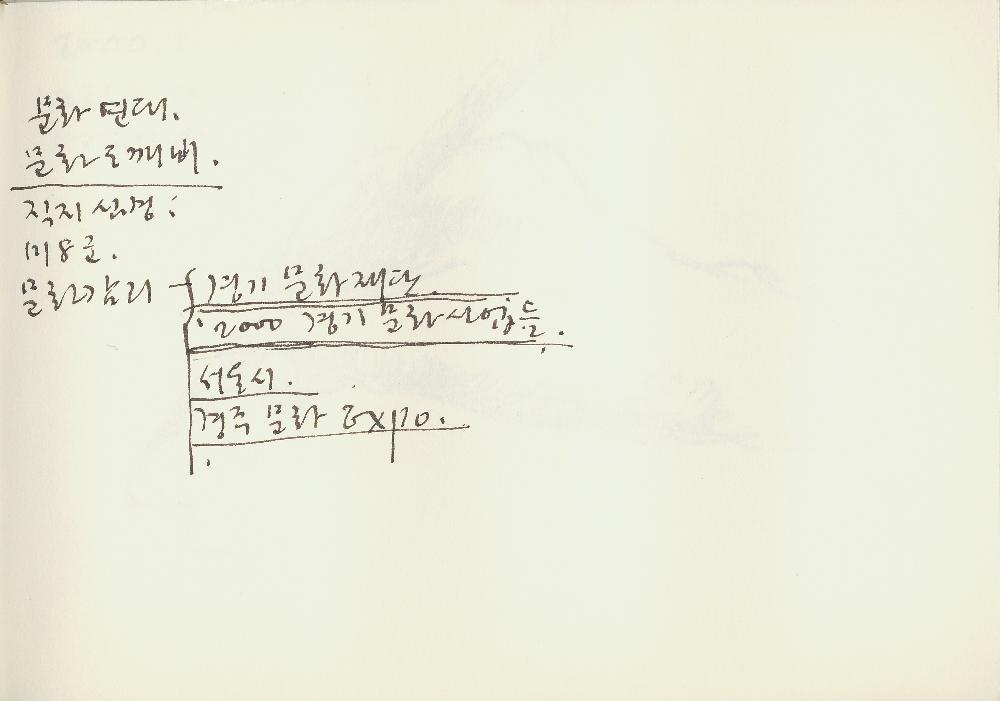 문화연대.
문화도깨비.
직지심경:
미8군.
문화감리 경기 문화재단.
2000 경기 문화사업들.
서울시.
경주 문화 EXPO.